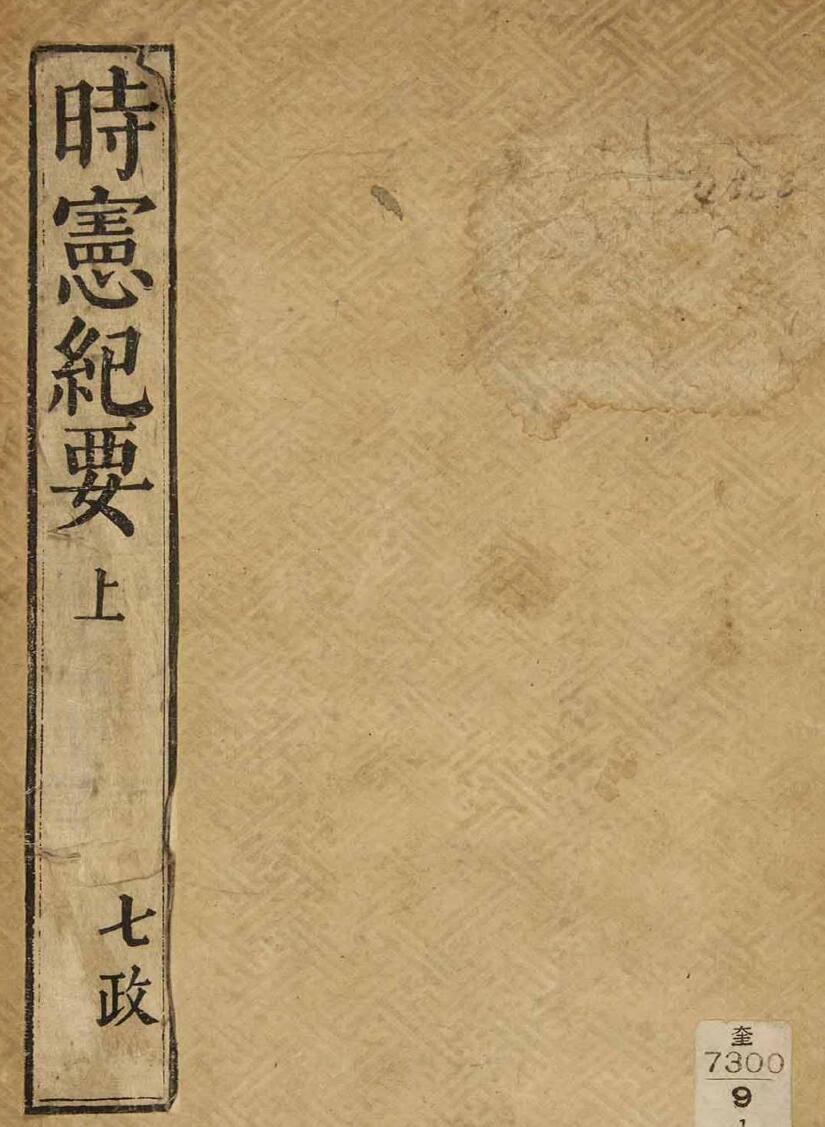 時憲紀要 上
七政
奎
7300
9
1